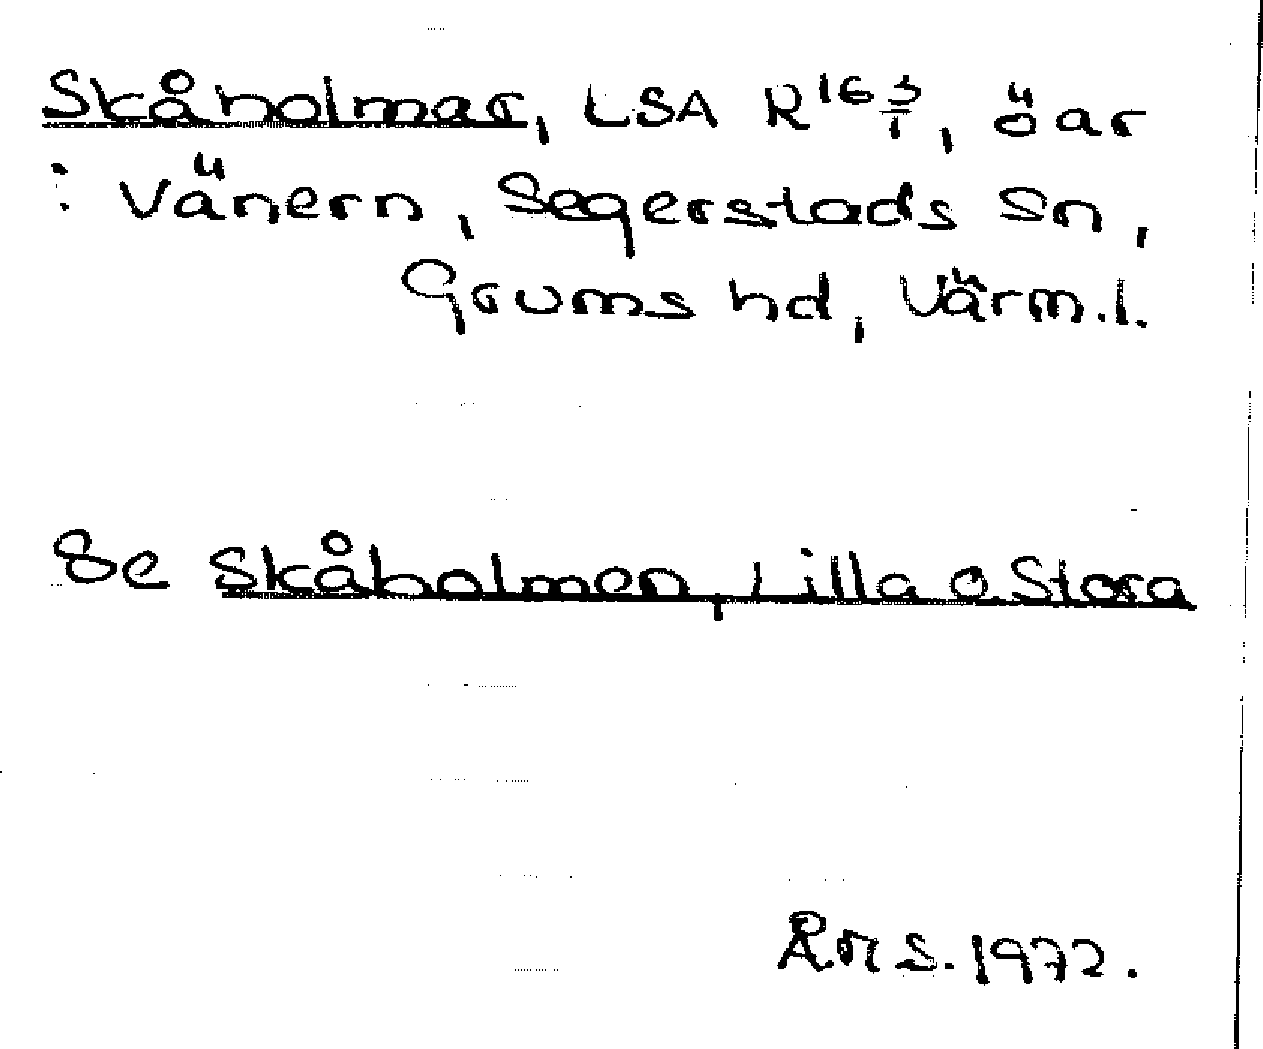 Skåholmar, LSA R16 3/1, öar
i Vänern, Segerstads sn,
Grums hd, Värm.l.
Se Skåholmen, Lilla o. Stora
S. 1972.